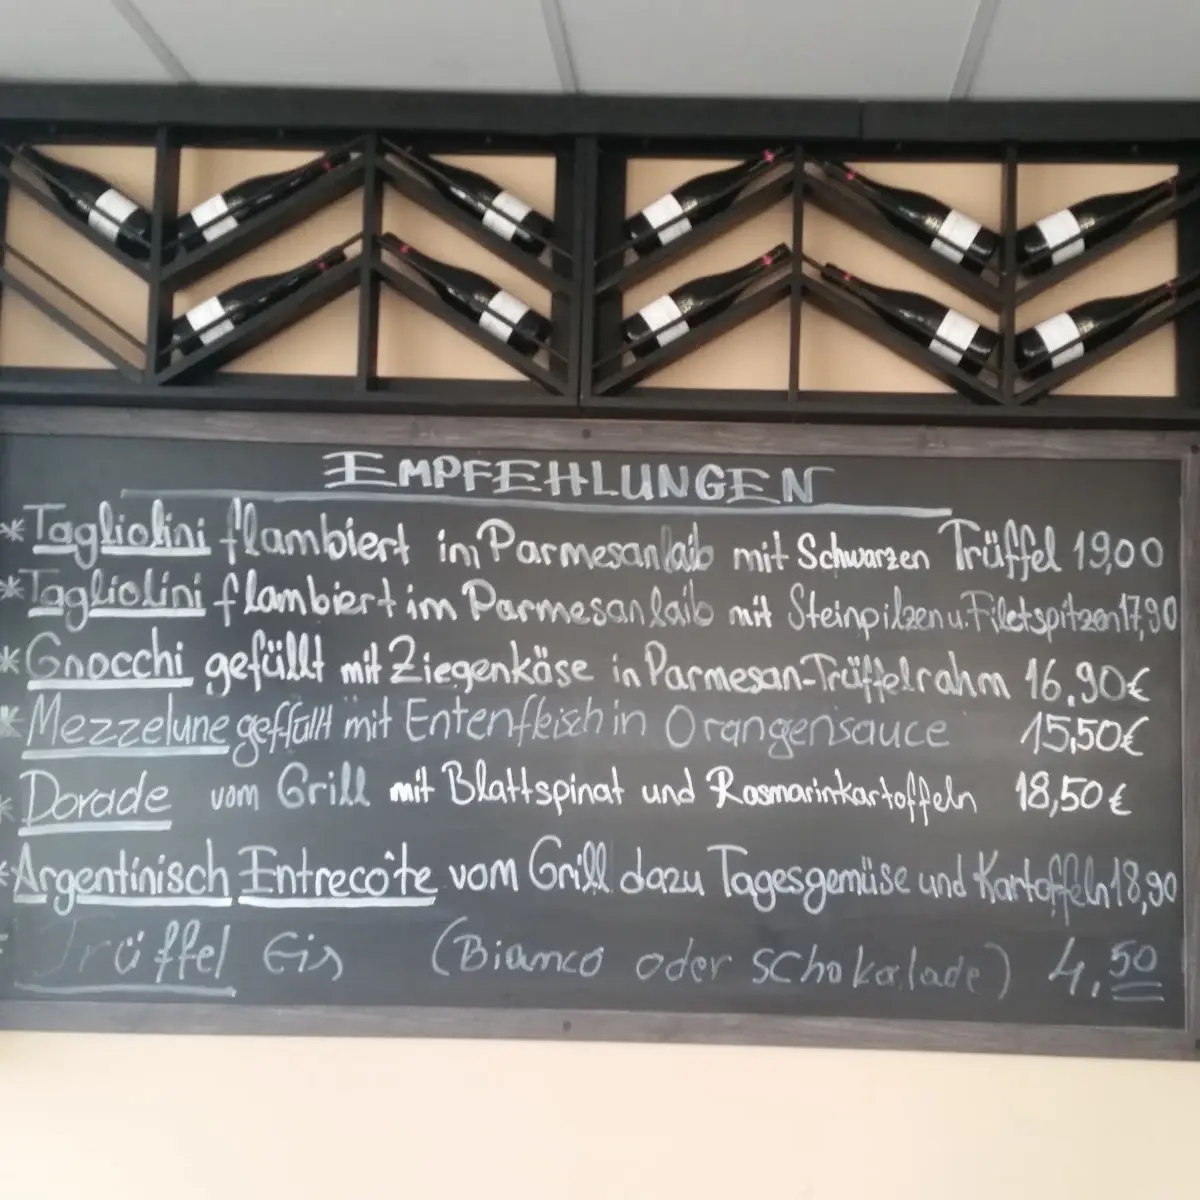 EMPFEHLUNGEN
* Tagliolini flambiert im Parmesanlaib mit Schwarzen Trüffel 19,00
* Tagliolini flambiert im Parmesanlaib mit Steinpilzen u. Filetspitzen 17,90
* Gnocchi gefüllt mit Ziegenkäse in Parmesan-Trüffelrahm 16,90€
* Mezzelune gefüllt mit Entenfleisch in Orangensauce 15,50€
* Dorade vom Grill mit Blattspinat und Rosmarinkartoffeln 18,50€
* Argentinisch Entrecôte vom Grill dazu Tagesgemüse und Kartoffeln 18,90
* Trüffel Eis (Bianco oder schokolade) 4,50